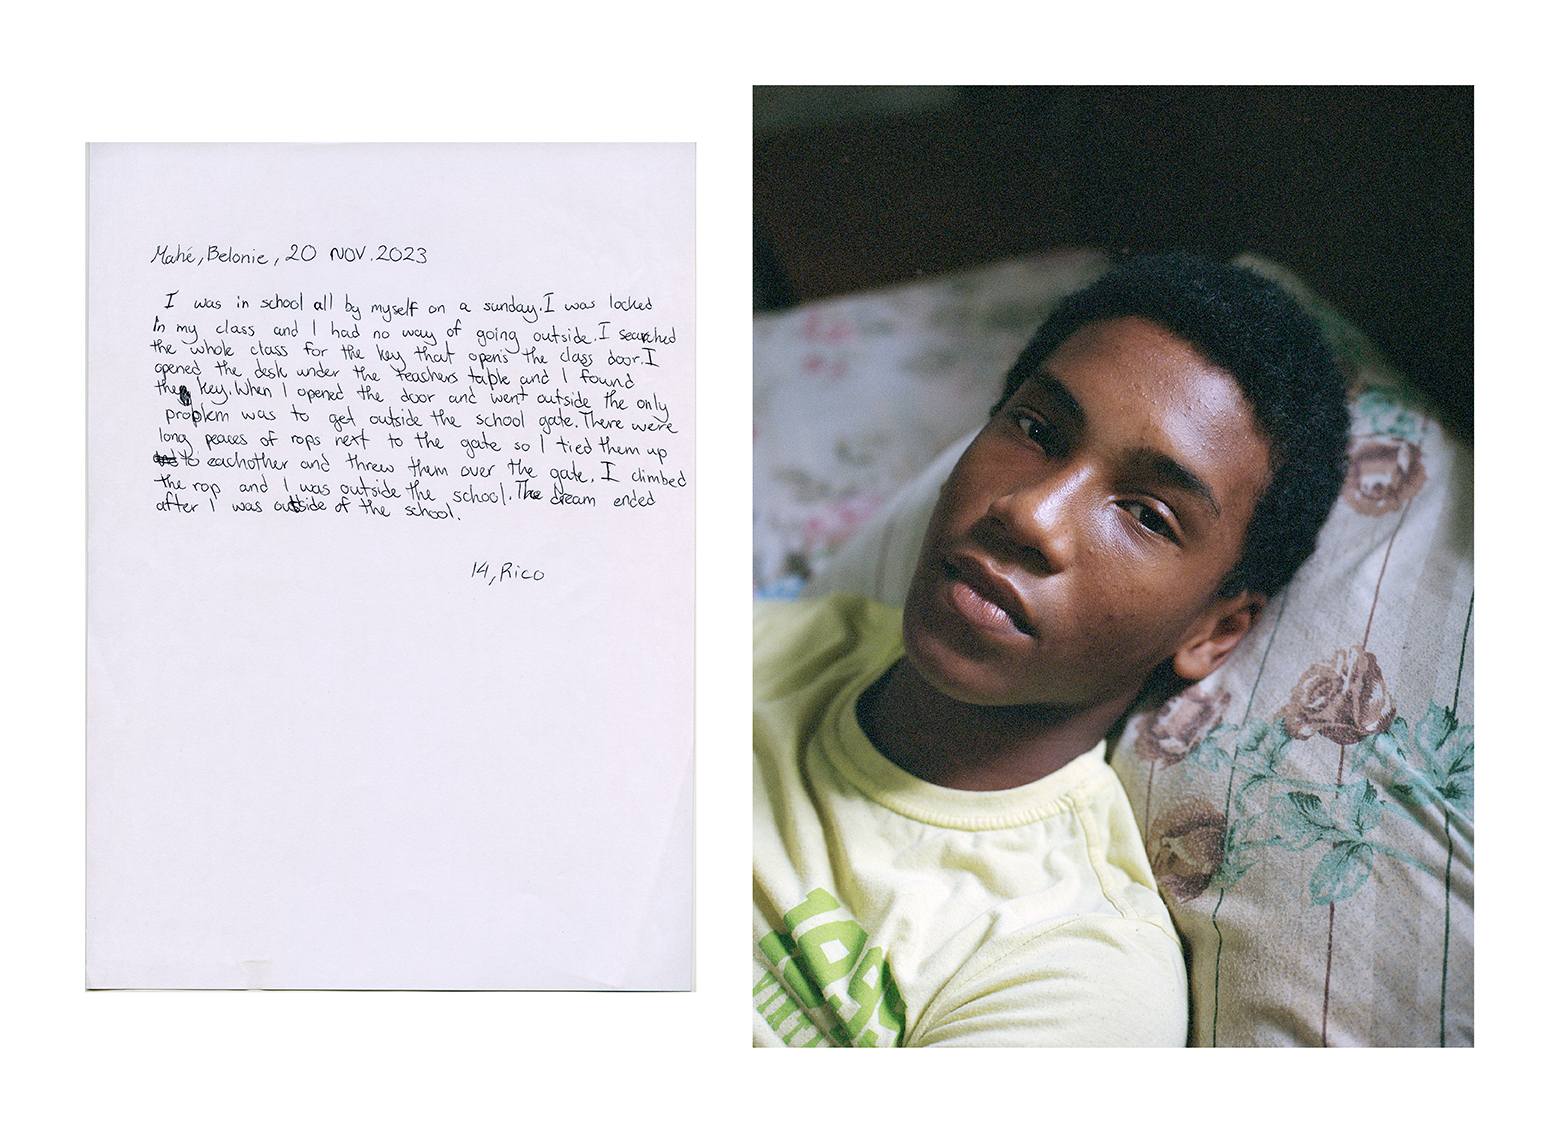 Mahé, Belonie, 20 NOV. 2023
I was in school all by myself on a sunday. I was locked
in my class and I had no way of going outside. I searched
the whole class for the key that open's the class door. I
opened the desk under the teachers table and I found
the key. When I opened the door and went outside the only
problem was to get outside the school gate. There were
long peaces of rops next to the gate so I tied them up
to eachother and threw them over the gate. I climbed
the rop and I was outside the school. The dream ended
after I was outside of the school.
14, Rico